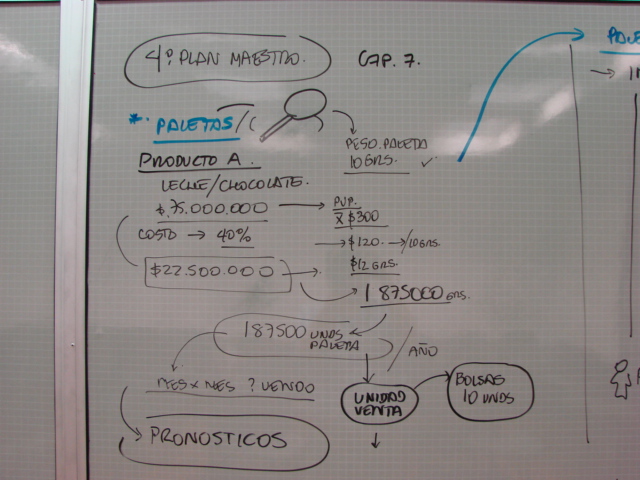 4º PLAN MAESTRO.
CAP. 7.
* PALETAS/C
PESO. PALETA
10 GRS. ✓
PRODUCTO A.
LECHE/CHOCOLATE.
$75.000.000 →
PVP.
X $300
COSTO → 40%
→ $120. → /10 GRS.
$22.500.000 →
$12 GRS.
1 875000 GRS.
187500 UNDS
PALETA
/ AÑO
MES x MES ? VENDO
UNIDAD
VENTA
BOLSAS
10 UNDS
PRONOSTICOS